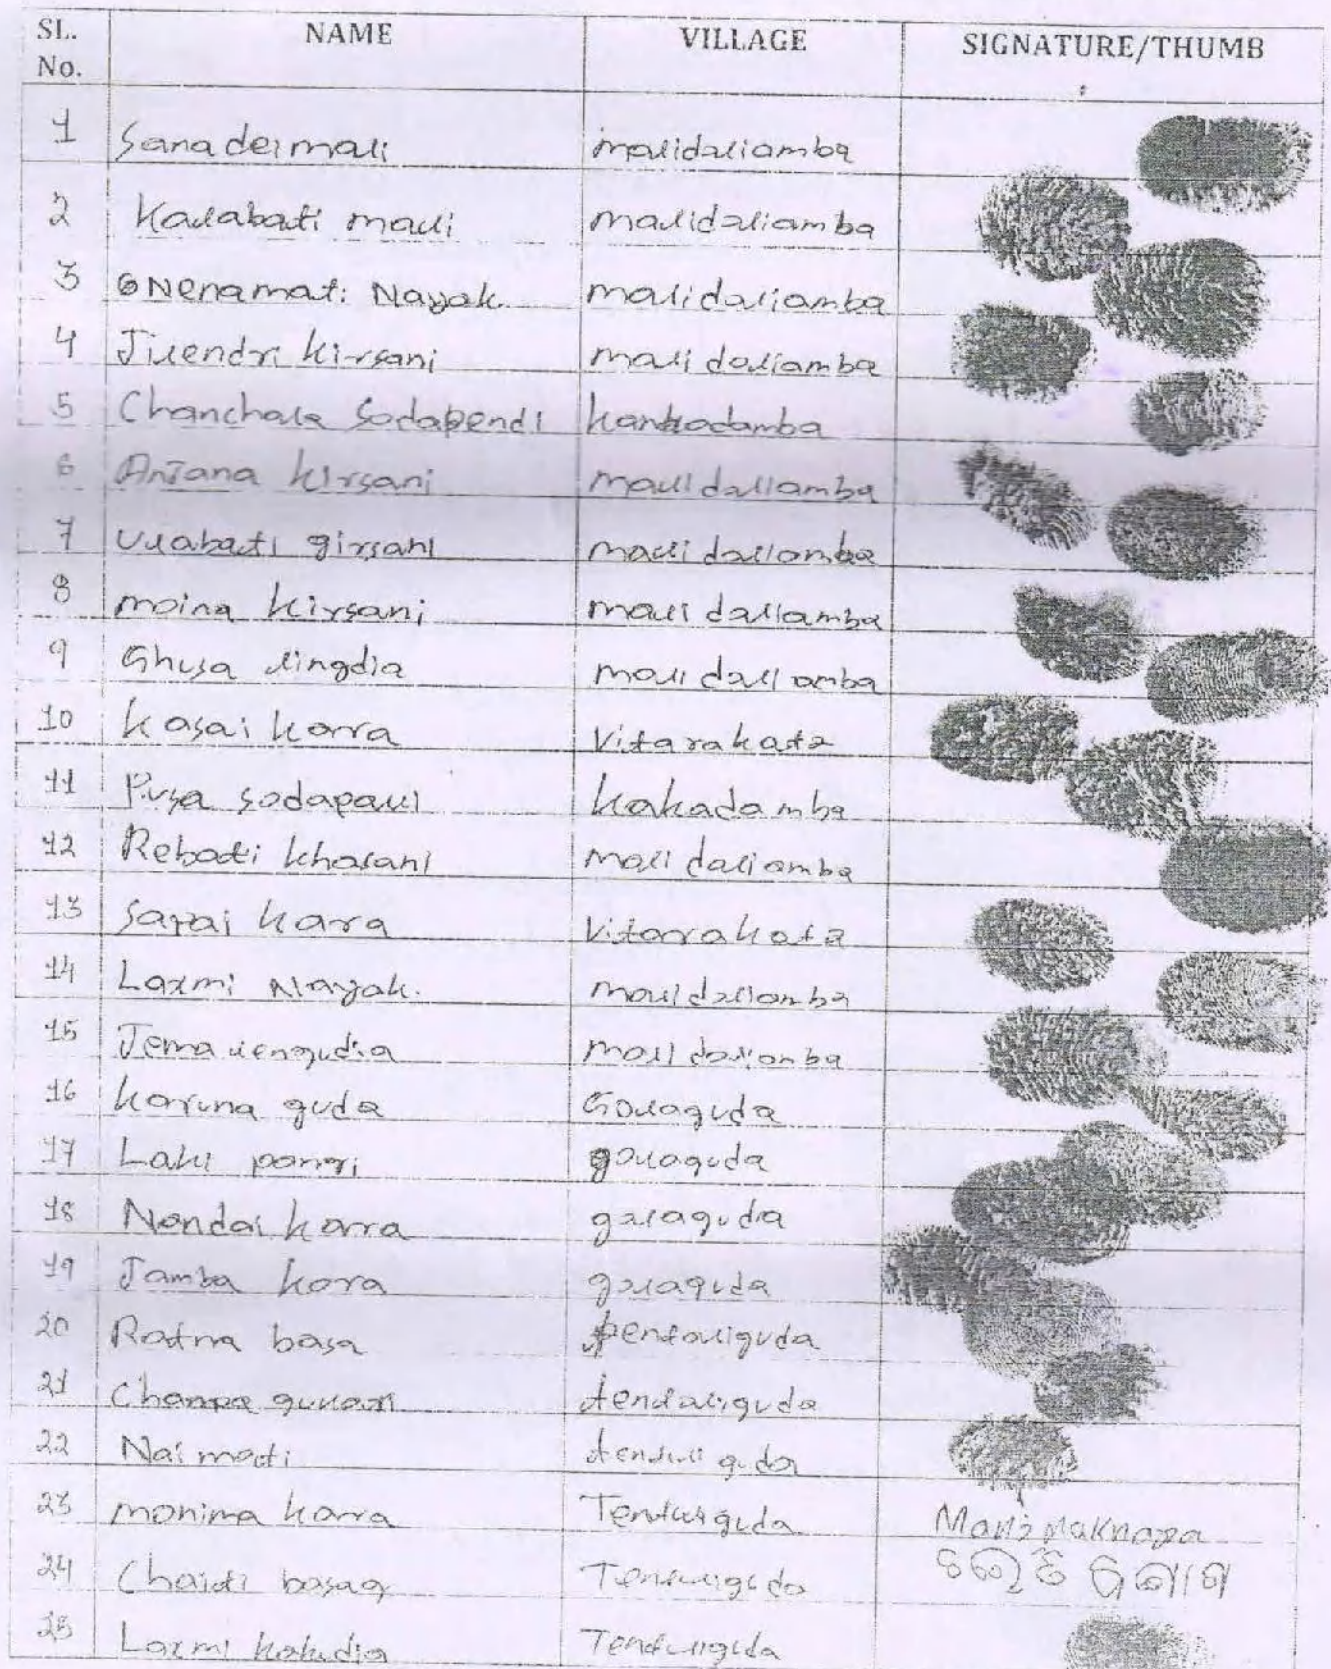 SL. No. NAME VILLAGE SIGNATURE/THUMB
1 Sanadei mali malidaliamba
2 Kalabati mali malidaliamba
3 Nenamati Nayak. malidaliamba
4 Jilendri kirsani malidaliamba
5 Chanchala Sodabendi kankadamba
6 Anjana kirsani malidaliamba
7 Ulabati girsani malidaliamba
8 moina kirsani malidaliamba
9 Ghusa lingdia malidaliamba
10 kasai karra Vitarakata
11 Pusa sodapali kakadamba
12 Rebati kharani malidaliamba
13 Sapai kara Vitarakata
14 Laxmi Nayak. malidaliamba
15 Jema lengudia malidaliamba
16 karuna guda Golaguda
17 Laki pangi golaguda
18 Nandai karra golaguda
19 Jamba kora golaguda
20 Ratna basa tentuliguda
21 Champa gunani tendaliguda
22 Naimati tenduliguda
23 monima karra Tentuliguda
24 Chaiti basag Tenduliguda
25 Laxmi kakudia Tenduliguda